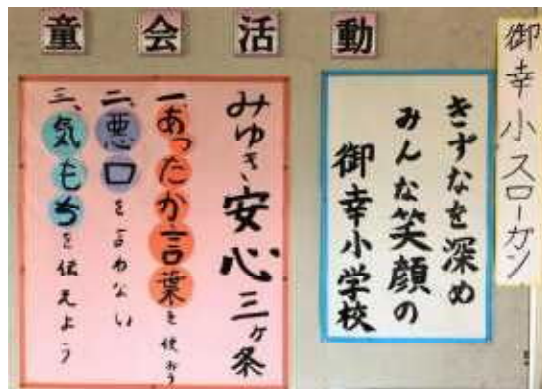 童会活動
御幸小スローガン
きずなを深め
みんな笑顔の
御幸小学校
みゆき安心三ヶ条
一、あったか言葉を使おう
二、悪口を言わない
三、気もちを伝えよう